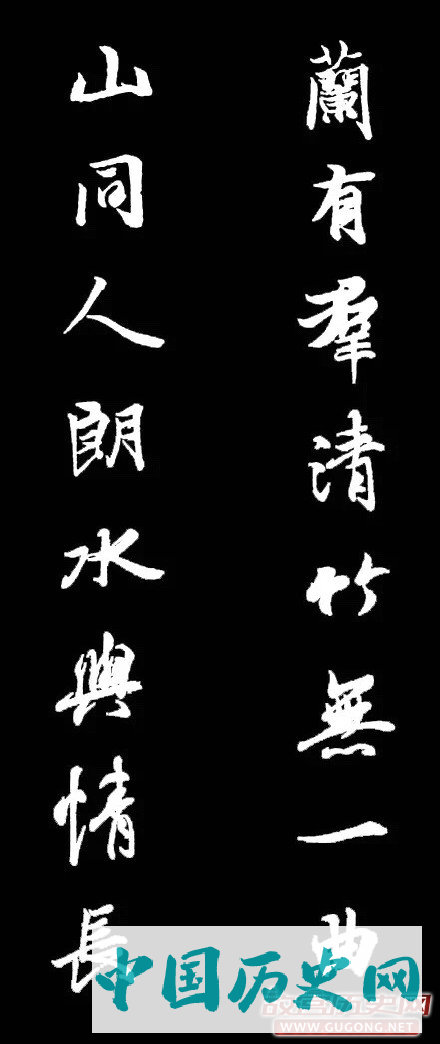 蘭有羣清竹無一曲
山同人朗水與情長
中国历史网
WWW.GUGONG.NET